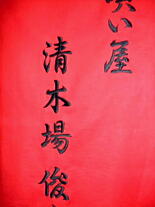 い屋
清木場俊